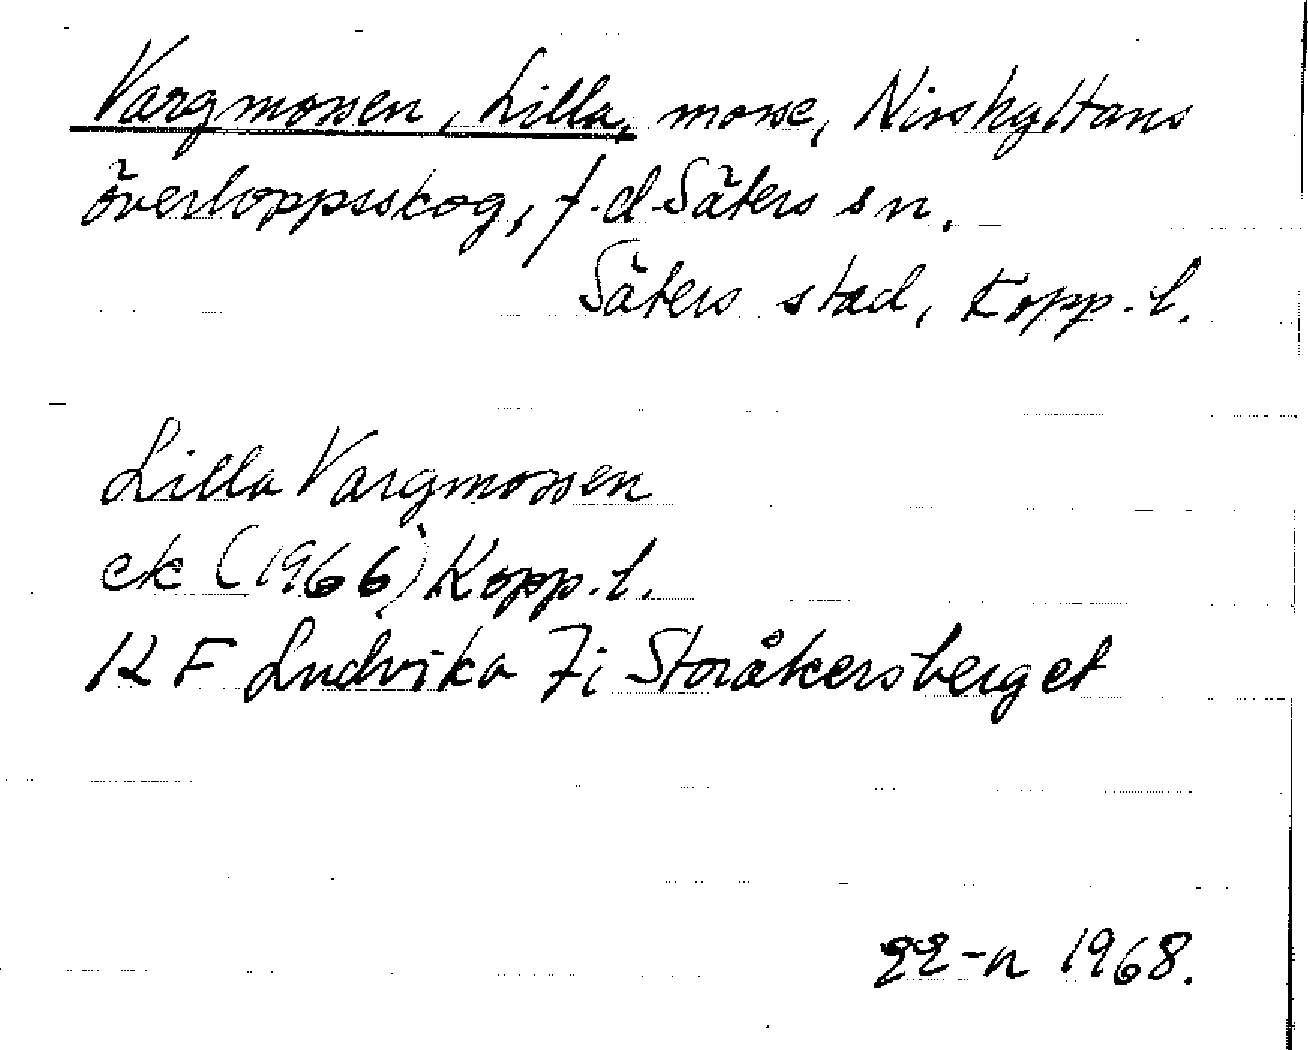 Vargmossen, Lilla, mosse, Nisshyttans
överloppsskog, f.d. Säters sn.
Säters stad, Kopp. l.
Lilla Vargmossen
ek (1966) Kopp. l.
KF Ludvika 7i Storåkersberget
1968.